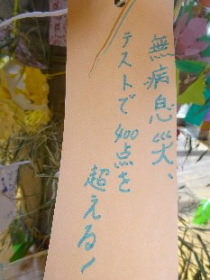 無病息災、
テストで400点を
超える!